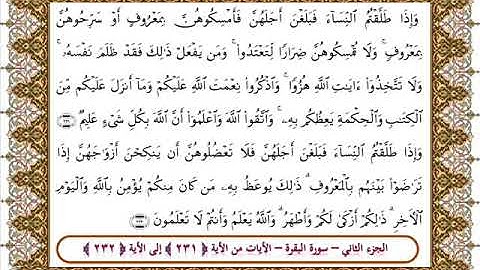 وَإِذَا طَلَّقْتُمُ ٱلنِّسَآءَ فَبَلَغْنَ أَجَلَهُنَّ فَأَمْسِكُوهُنَّ بِمَعْرُوفٍ أَوْ سَرِّحُوهُنَّ
بِمَعْرُوفٍ ۚ وَلَا تُمْسِكُوهُنَّ ضِرَارًا لِّتَعْتَدُوا۟ ۚ وَمَن يَفْعَلْ ذَٰلِكَ فَقَدْ ظَلَمَ نَفْسَهُۥ ۚ
وَلَا تَتَّخِذُوٓا۟ ءَايَٰتِ ٱللَّهِ هُزُوًا ۚ وَٱذْكُرُوا۟ نِعْمَتَ ٱللَّهِ عَلَيْكُمْ وَمَآ أَنزَلَ عَلَيْكُم مِّنَ
ٱلْكِتَٰبِ وَٱلْحِكْمَةِ يَعِظُكُم بِهِۦ ۚ وَٱتَّقُوا۟ ٱللَّهَ وَٱعْلَمُوٓا۟ أَنَّ ٱللَّهَ بِكُلِّ شَىْءٍ عَلِيمٌ ﴿٢٣١﴾
وَإِذَا طَلَّقْتُمُ ٱلنِّسَآءَ فَبَلَغْنَ أَجَلَهُنَّ فَلَا تَعْضُلُوهُنَّ أَن يَنكِحْنَ أَزْوَٰجَهُنَّ إِذَا
تَرَٰضَوْا۟ بَيْنَهُم بِٱلْمَعْرُوفِ ۗ ذَٰلِكَ يُوعَظُ بِهِۦ مَن كَانَ مِنكُمْ يُؤْمِنُ بِٱللَّهِ وَٱلْيَوْمِ
ٱلْءَاخِرِ ۗ ذَٰلِكُمْ أَزْكَىٰ لَكُمْ وَأَطْهَرُ ۗ وَٱللَّهُ يَعْلَمُ وَأَنتُمْ لَا تَعْلَمُونَ ﴿٢٣٢﴾
الجزء الثاني – سورة البقرة – الآيات من الآية ﴿ ٢٣١ ﴾ إلى الآية ﴿ ٢٣٢ ﴾